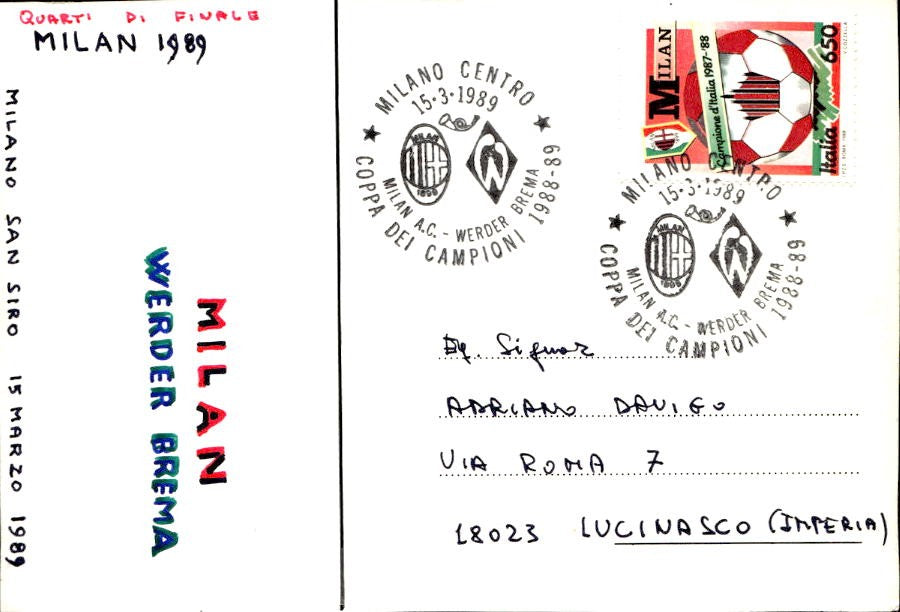 QUARTI DI FINALE
MILAN 1989
MILANO SAN SIRO 15 MARZO 1989
MILAN
WERDER BREMA
MILANO CENTRO
15·3·1989
MILAN
1899
MILAN A.C. - WERDER BREMA
COPPA DEI CAMPIONI 1988-89
MILAN
Campione d'Italia 1987-'88
Italia 650
MILANO CENTRO
15·3·1989
MILAN
1899
MILAN A.C. - WERDER BREMA
COPPA DEI CAMPIONI 1988-89
Eg. Signor
ADRIANO DAVIGO
VIA ROMA 7
18023 LUCINASCO (IMPERIA)